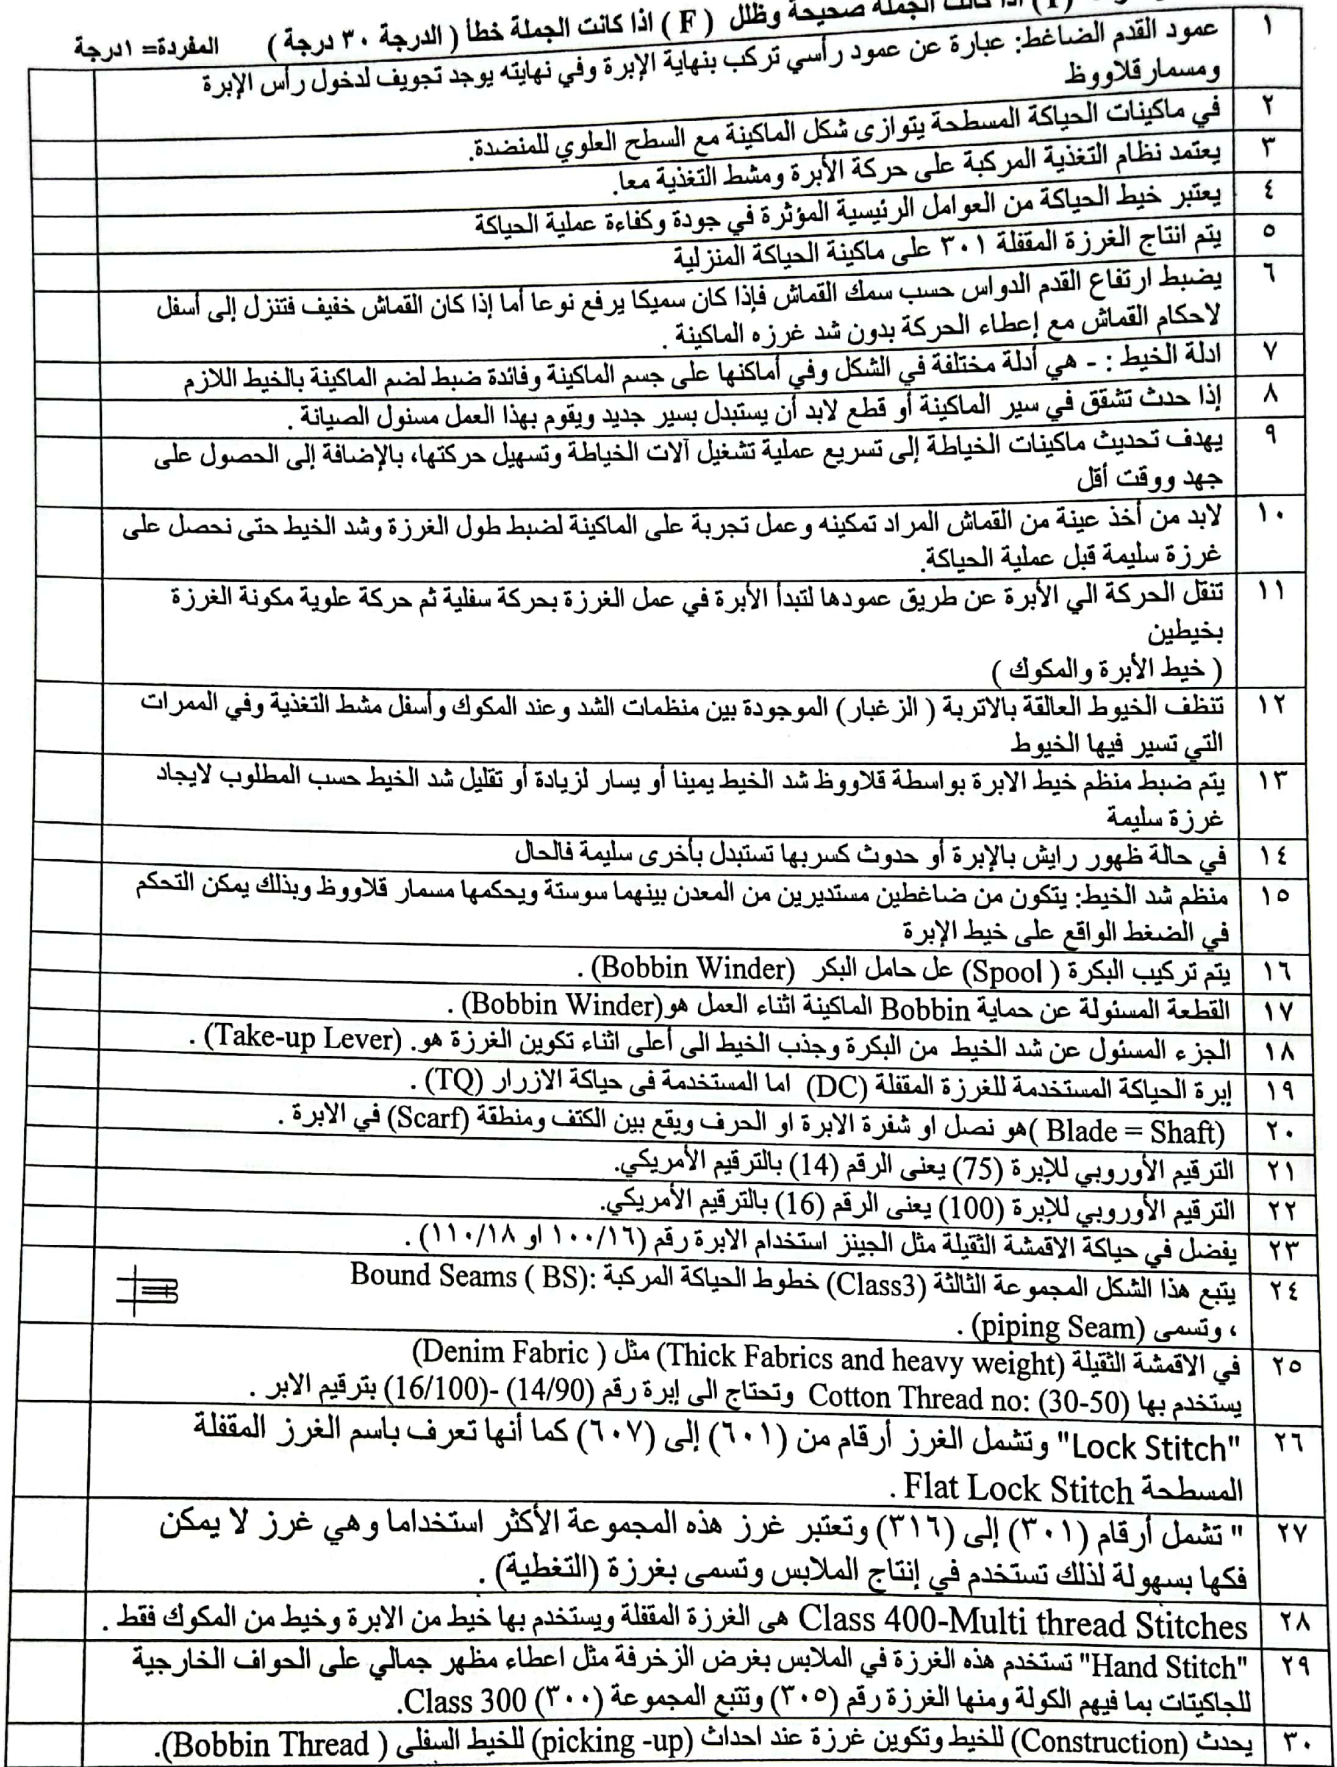 (T) اذا كانت الجملة صحيحة وظلل ( F ) اذا كانت الجملة خطأ ( الدرجة ٣٠ درجة ) المفردة= ١درجة
١ عمود القدم الضاغط: عبارة عن عمود رأسي تركب بنهاية الإبرة وفي نهايته يوجد تجويف لدخول رأس الإبرة
ومسمار قلاووظ
٢ في ماكينات الحياكة المسطحة يتوازى شكل الماكينة مع السطح العلوي للمنضدة.
٣ يعتمد نظام التغذية المركبة على حركة الأبرة ومشط التغذية معا.
٤ يعتبر خيط الحياكة من العوامل الرئيسية المؤثرة في جودة وكفاءة عملية الحياكة
٥ يتم انتاج الغرزة المقفلة ٣٠١ على ماكينة الحياكة المنزلية
٦ يضبط ارتفاع القدم الدواس حسب سمك القماش فإذا كان سميكا يرفع نوعا أما إذا كان القماش خفيف فتنزل إلى أسفل
لاحكام القماش مع إعطاء الحركة بدون شد غرزه الماكينة .
٧ ادلة الخيط : - هي أدلة مختلفة في الشكل وفي أماكنها على جسم الماكينة وفائدة ضبط لضم الماكينة بالخيط اللازم
٨ إذا حدث تشقق في سير الماكينة أو قطع لابد أن يستبدل بسير جديد ويقوم بهذا العمل مسئول الصيانة .
٩ يهدف تحديث ماكينات الخياطة إلى تسريع عملية تشغيل آلات الخياطة وتسهيل حركتها، بالإضافة إلى الحصول على
جهد ووقت أقل
١٠ لابد من أخذ عينة من القماش المراد تمكينه وعمل تجربة على الماكينة لضبط طول الغرزة وشد الخيط حتى نحصل على
غرزة سليمة قبل عملية الحياكة.
١١ تنقل الحركة الي الأبرة عن طريق عمودها لتبدأ الأبرة في عمل الغرزة بحركة سفلية ثم حركة علوية مكونة الغرزة
بخيطين
( خيط الأبرة والمكوك )
١٢ تنظف الخيوط العالقة بالاتربة ( الزغبار) الموجودة بين منظمات الشد وعند المكوك وأسفل مشط التغذية وفي الممرات
التي تسير فيها الخيوط
١٣ يتم ضبط منظم خيط الابرة بواسطة قلاووظ شد الخيط يمينا أو يسار لزيادة أو تقليل شد الخيط حسب المطلوب لايجاد
غرزة سليمة
١٤ في حالة ظهور رايش بالإبرة أو حدوث كسر بها تستبدل بأخرى سليمة فالحال
١٥ منظم شد الخيط: يتكون من ضاغطين مستديرين من المعدن بينهما سوستة ويحكمها مسمار قلاووظ وبذلك يمكن التحكم
في الضغط الواقع على خيط الإبرة
١٦ يتم تركيب البكرة ( Spool) عل حامل البكر (Bobbin Winder) .
١٧ القطعة المسئولة عن حماية Bobbin الماكينة اثناء العمل هو(Bobbin Winder) .
١٨ الجزء المسئول عن شد الخيط من البكرة وجذب الخيط الى أعلى اثناء تكوين الغرزة هو. (Take-up Lever) .
١٩ إبرة الحياكة المستخدمة للغرزة المقفلة (DC) اما المستخدمة فى حياكة الازرار (TQ) .
٢٠ ( Blade = Shaft)هو نصل او شفرة الابرة او الحرف ويقع بين الكتف ومنطقة (Scarf) في الابرة .
٢١ الترقيم الأوروبي للإبرة (75) يعنى الرقم (14) بالترقيم الأمريكي.
٢٢ الترقيم الأوروبي للإبرة (100) يعنى الرقم (16) بالترقيم الأمريكي.
٢٣ يفضل في حياكة الاقمشة الثقيلة مثل الجينز استخدام الابرة رقم (١٠٠/١٦ او ١١٠/١٨) .
٢٤ يتبع هذا الشكل المجموعة الثالثة (Class3) خطوط الحياكة المركبة :(Bound Seams ( BS
، وتسمى (piping Seam) .
٢٥ في الاقمشة الثقيلة (Thick Fabrics and heavy weight) مثل ( Denim Fabric)
يستخدم بها Cotton Thread no: (30-50) وتحتاج الى إبرة رقم (14/90) -(16/100) بترقيم الابر .
٢٦ "Lock Stitch" وتشمل الغرز أرقام من (٦٠١) إلى (٦٠٧) كما أنها تعرف باسم الغرز المقفلة
المسطحة Flat Lock Stitch .
٢٧ " تشمل أرقام (٣٠١) إلى (٣١٦) وتعتبر غرز هذه المجموعة الأكثر استخداما وهي غرز لا يمكن
فكها بسهولة لذلك تستخدم في إنتاج الملابس وتسمى بغرزة (التغطية) .
٢٨ Class 400-Multi thread Stitches هى الغرزة المقفلة ويستخدم بها خيط من الابرة وخيط من المكوك فقط .
٢٩ "Hand Stitch" تستخدم هذه الغرزة في الملابس بغرض الزخرفة مثل اعطاء مظهر جمالي على الحواف الخارجية
للجاكيتات بما فيهم الكولة ومنها الغرزة رقم (٣٠٥) وتتبع المجموعة (٣٠٠) Class 300.
٣٠ يحدث (Construction) للخيط وتكوين غرزة عند احداث (picking -up) للخيط السفلى ( Bobbin Thread).